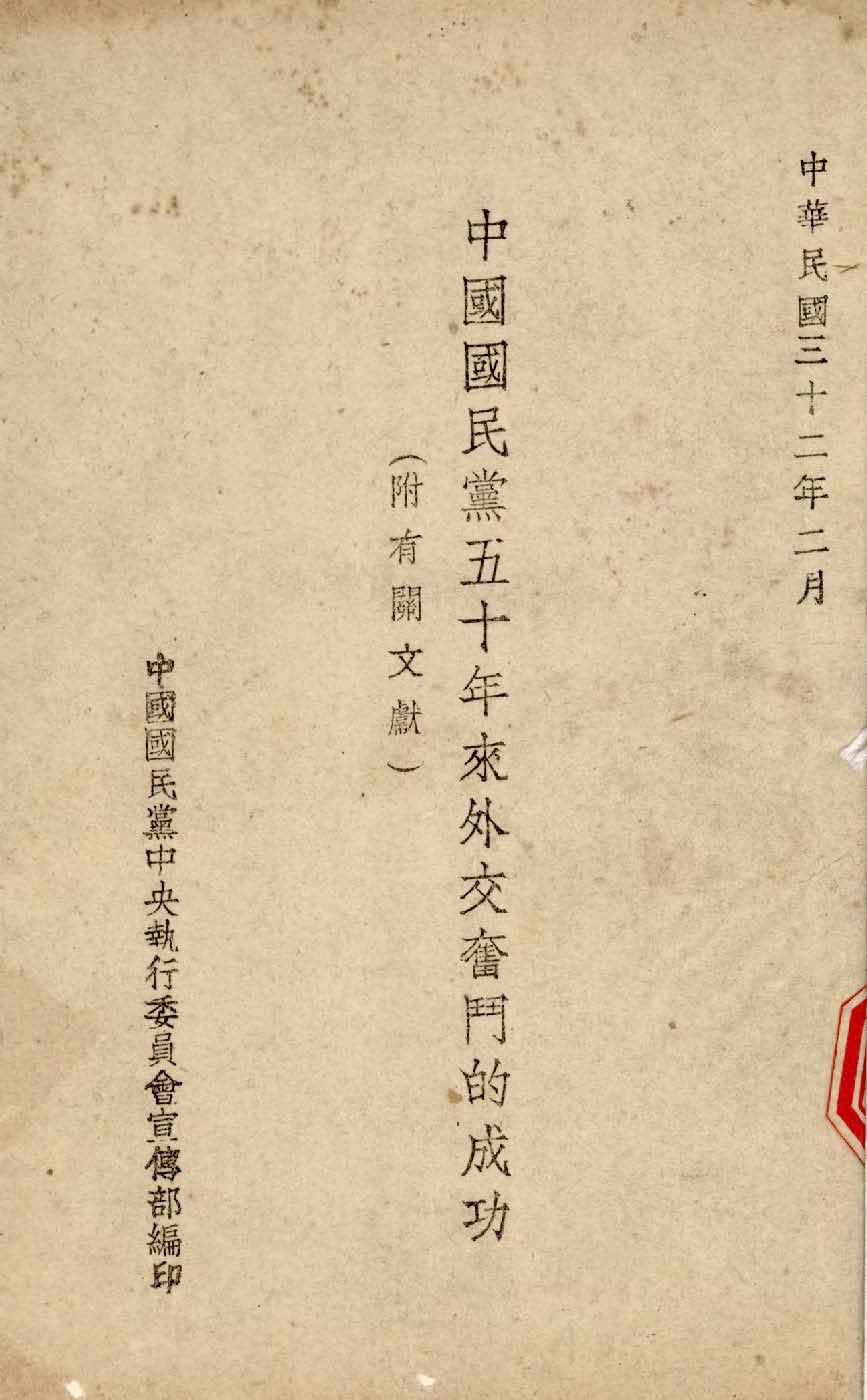 中華民國三十二年二月
中國國民黨五十年來外交奮鬥的成功
（附有關文獻）
中國國民黨中央執行委員會宣傳部編印